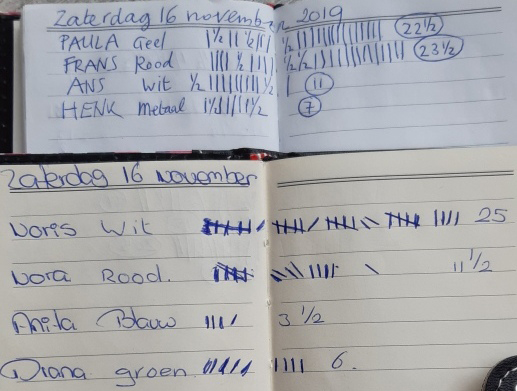 Zaterdag 16 november 2019
PAULA Geel 22½
FRANS Rood 23½
ANS Wit 11
HENK Metaal 7
Zaterdag 16 november
Noris Wit 25
Nora Rood. 11½
Anita Blauw 3½
Diana groen 6.